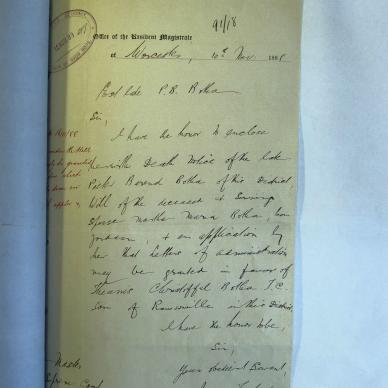 91/18
Office of the Resident Magistrate
at Worcester, 10th Nov. 1888
Est late P. B. Botha
Sir,
I have the honor to enclose
herewith Death Notice of the late
Pieter Barend Botha of this District,
Will of the deceased & Surviving
Spouse Martha Maria Botha, born
Jordaan, & an application by
her that Letters of administration
may be granted in favor of
Theunis Christoffel Botha T.C.
son of Rawsonville in this District
I have the honor to be,
Sir,
Your obedient Servant,
Master
Supreme Court